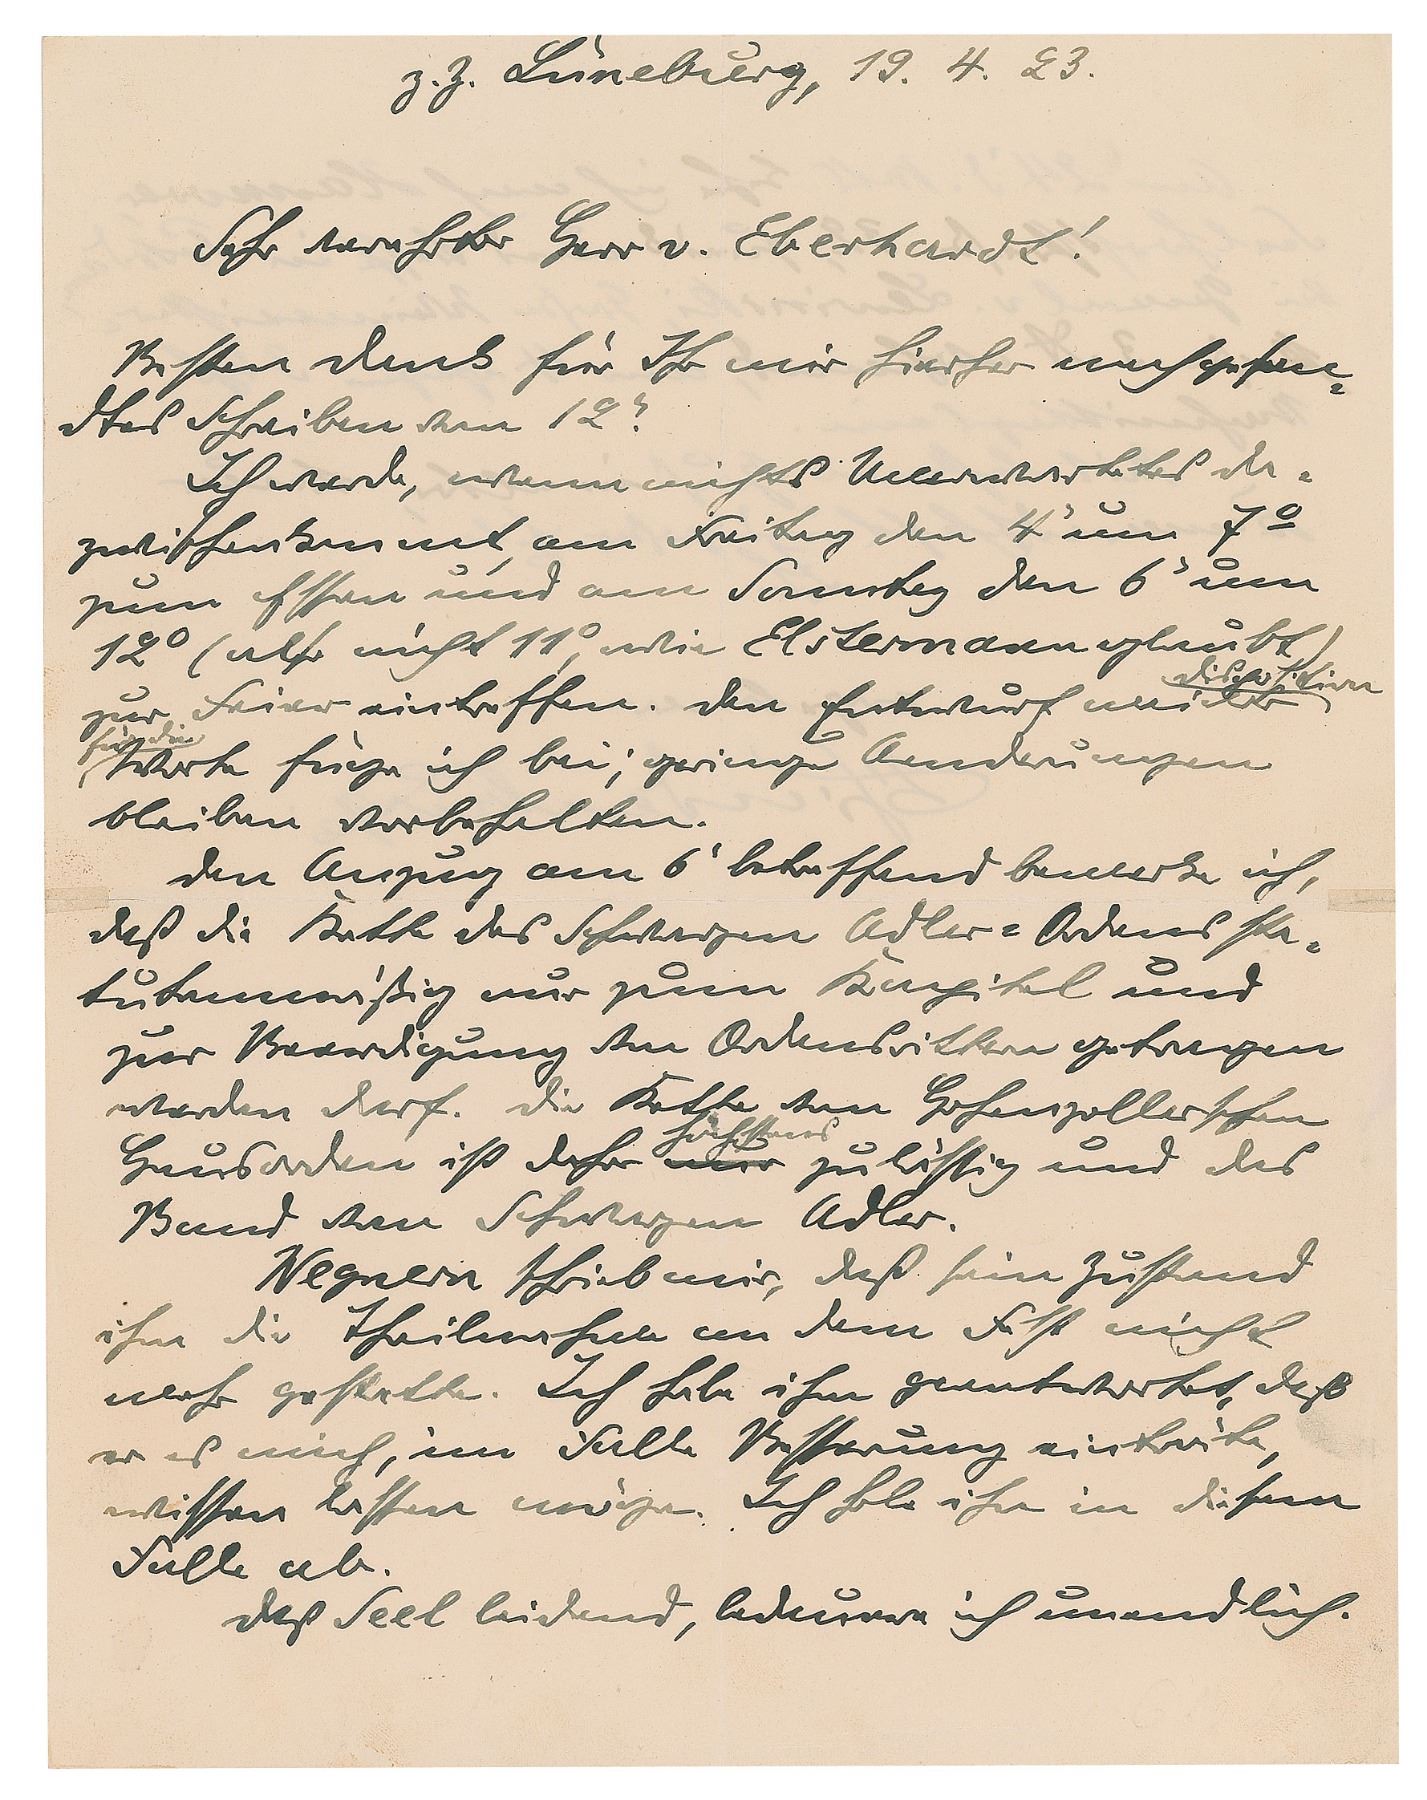 z. Z. Lüneburg, 19. 4. 23.
Sehr verehrter Herr v. Eberhardt!
Besten Dank für Ihr mir hierher nachgesan=
dtes Schreiben vom 12t.
Ich werde, wenn nichts Unerwartetes da=
zwischenkommt, am Freitag den 4t um 7⁰
zum Essen und am Sonntag den 6t um
12⁰ (also nicht 11⁰, wie Elstermann glaubt)
zur Feier eintreffen. Den Entwurf meiner Disposition
für die Worte füge ich bei; geringe Aenderungen
bleiben vorbehalten.
Den Anzug am 6t betreffend bemerke ich,
daß die Kette des Schwarzen Adler=Ordens sta=
tutenmäßig nur zum Kapitel und
zur Beerdigung von Ordensrittern getragen
werden darf. Die Kette vom Hohenzollerschen
höchstens
Hausorden ist daher nur zulässig und das
Band vom Schwarzen Adler.
Wegnern schrieb mir, daß sein Zustand
ihm die Theilnahme an dem Fest nicht
mehr gestatte. Ich habe ihm geantwortet, daß
er es mich, im Falle Besserung einträte,
wissen lassen möge. Ich hole ihn in diesem
Falle ab.
Daß Seel leidend, bedauere ich unendlich.